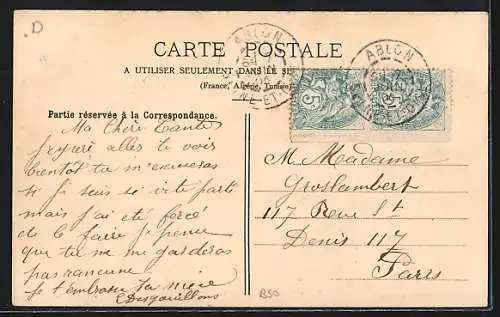 D
CARTE POSTALE
A UTILISER SEULEMENT DANS LE SE
(France, Algérie, Tunisie
ABLON
ABLON
SEINE-ET-OISE
5
5
Partie réservée à la Correspondance.
Ma Cheri tante
j'espere aller te voir
bientot tu m'excuseras
si je suis si vite partie
mais j'ai eté forcé
de le faire je pense
que tu ne me garderas
pas rancune
Je t'embrasse ta niece
M Madame
Groslambert
117 Rue St
Denis 117
Paris
B50